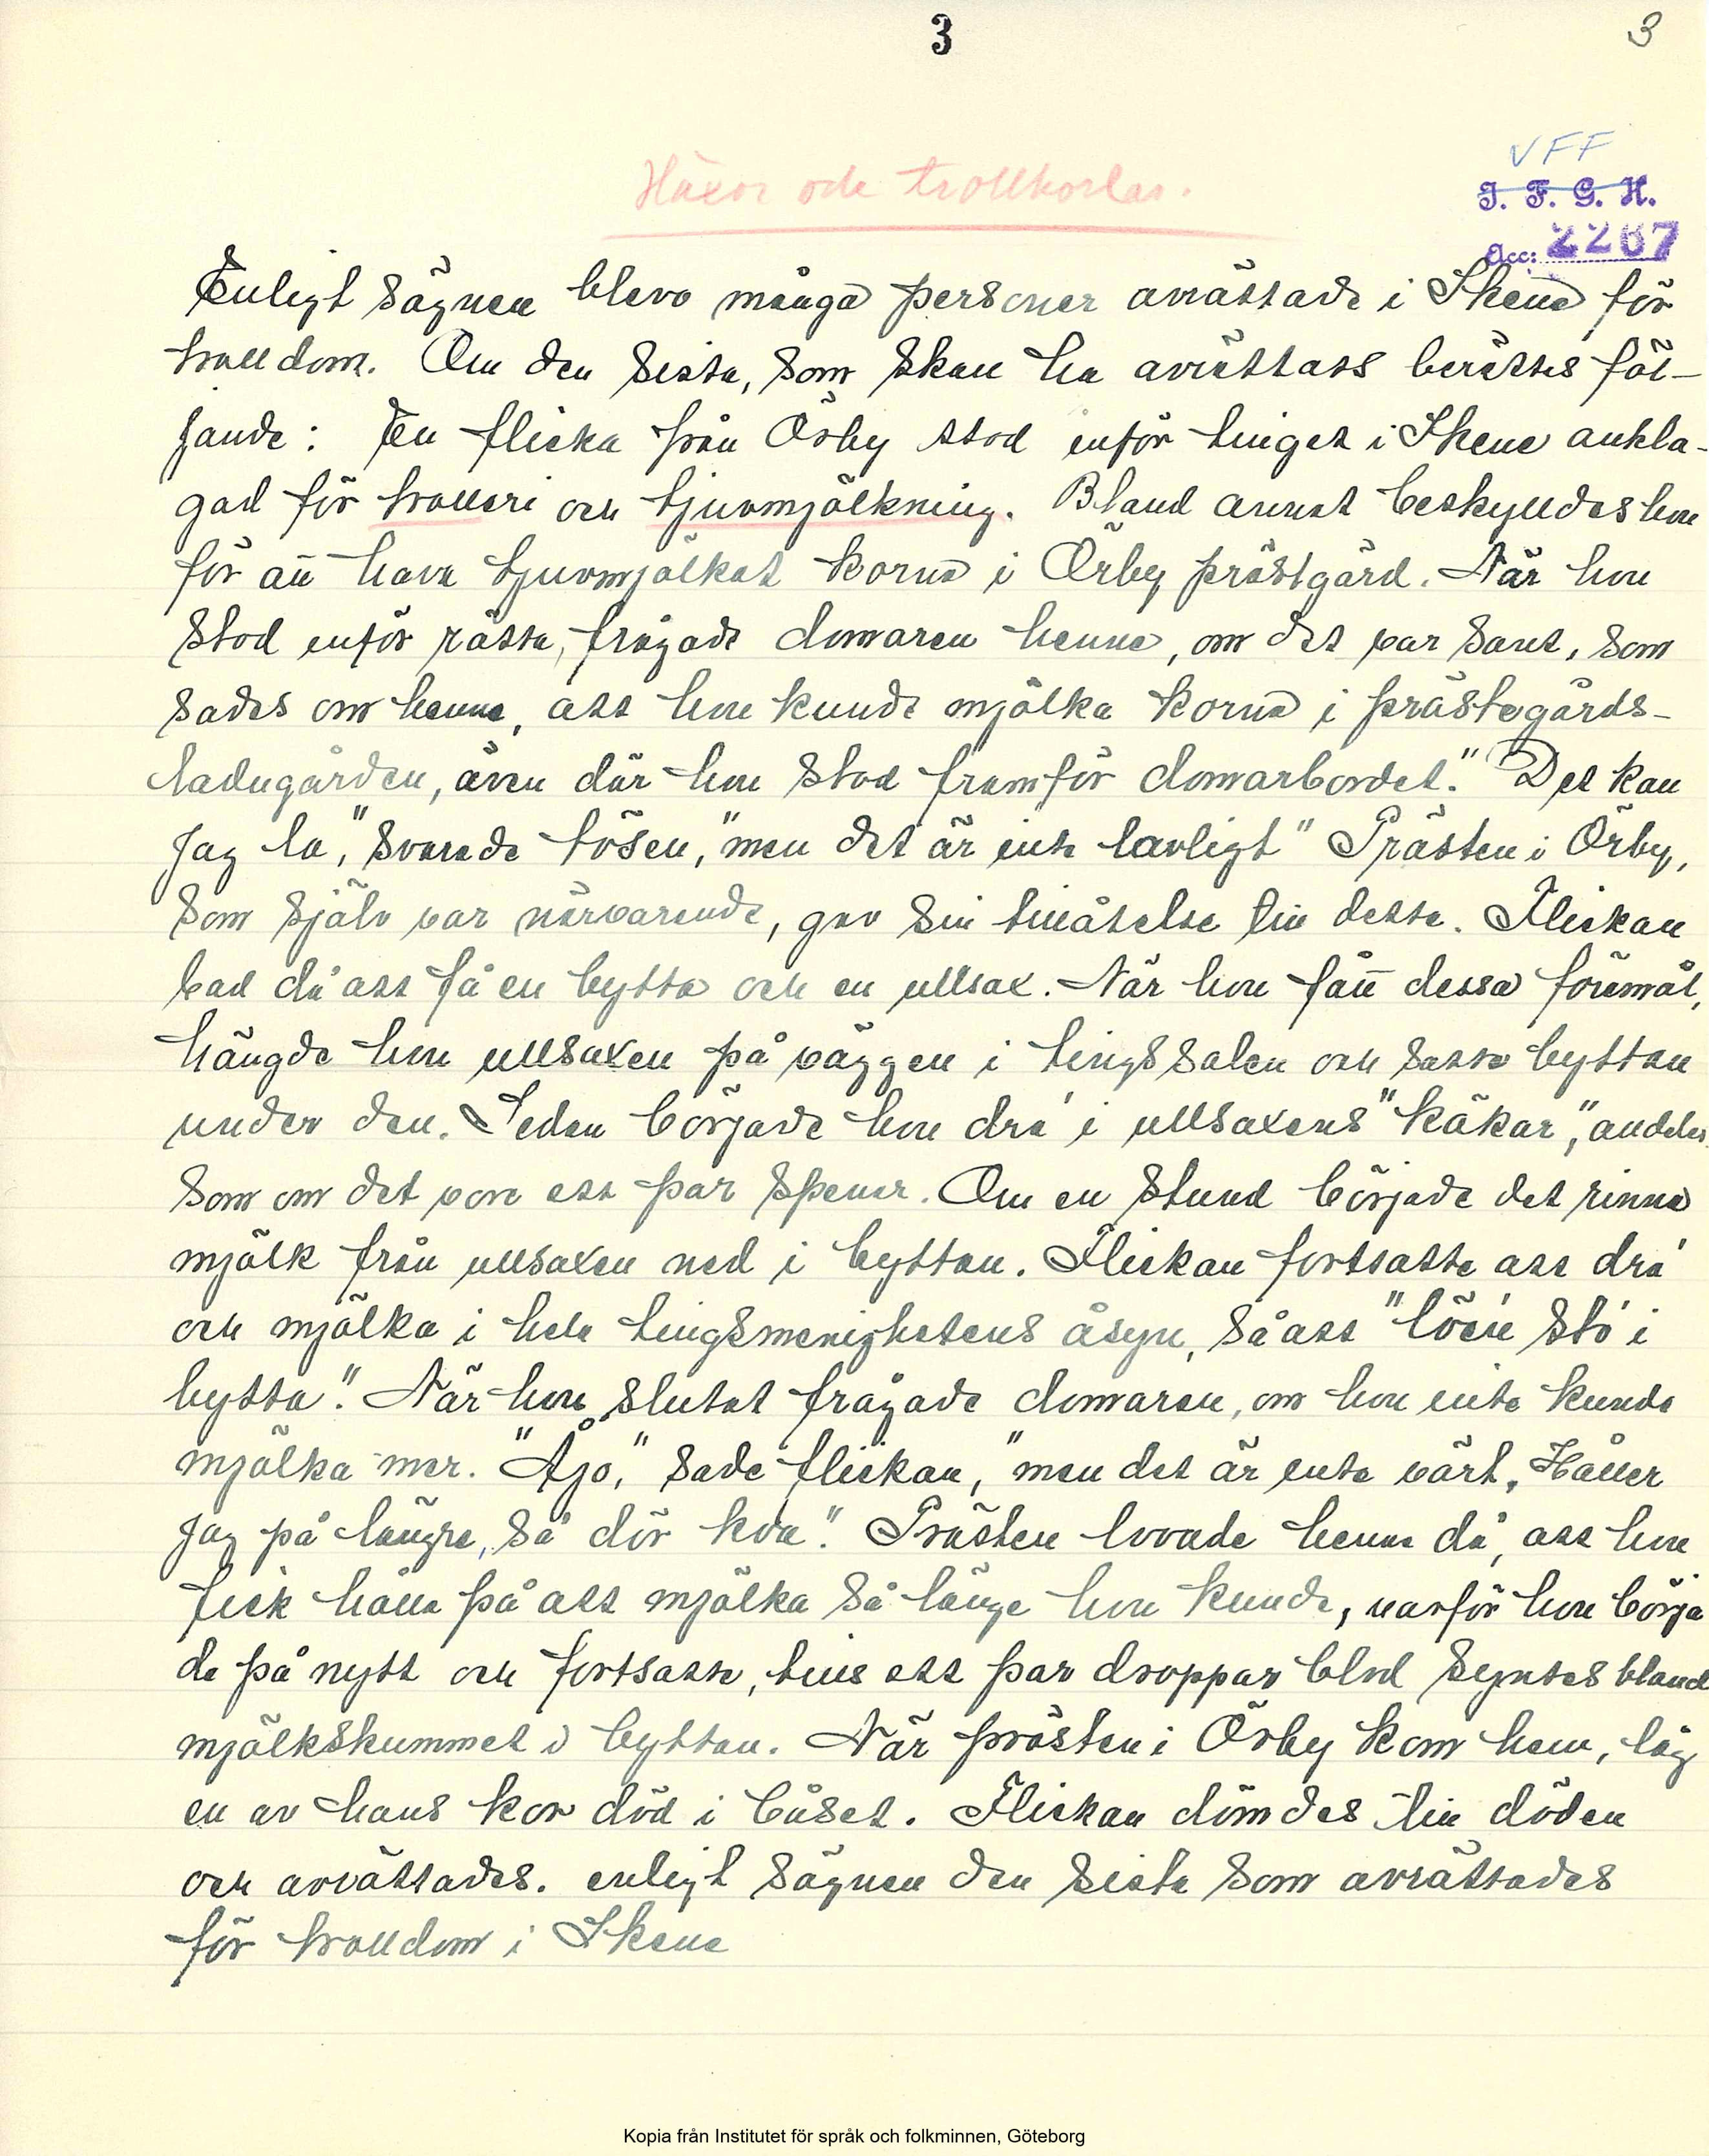 3
3
VFF
I. F. G. H.
Acc: 2267
Häxor och trollkarlar.
Enligt sägnen blevo många personer avrättade i Skene för
trolldom. Om den sista, som skall ha avrättats berättes föl-
jande: En flicka från Örby stod inför tinget i Skene ankla-
gad för trolleri och tjuvmjölkning. Bland annat beskylldes hon
för att hava tjuvmjölkat korna i Örby prästgård. När hon
stod inför rätta, frågade domaren henne, om det var sant, som
sades om henne, att hon kunde mjölka korna i prästegårds-
ladugården, även där hon stod framför domarbordet. "Det kan
jag la", svarade tösen, "men det är inte lovligt" Prästen i Örby,
som själv var närvarande, gav sin tillåtelse till detta. Flickan
bad då att få en bytta och en ullsax. När hon fått dessa föremål,
hängde hon ullsaxen på väggen i tingssalen och satte byttan
under den. Sedan började hon dra' i ullsaxens "käkar", alldeles
som om det vore ett par spenar. Om en stund började det rinna
mjölk från ullsaxen ned i byttan. Flickan fortsatte att dra'
och mjölka i hela tingsmenighetens åsyn, så att "löen sto' i
bytta". När hon slutat frågade domaren, om hon inte kunde
mjölka mer. "Åjo," sade flickan, "men det är inte värt. Håller
jag på längre, så dör koa". Prästen lovade henne då, att hon
fick hålla på att mjölka så länge hon kunde, varför hon börja
de på nytt och fortsatte, tills ett par droppar blod syntes bland
mjölkskummet i byttan. När prästen i Örby kom hem, låg
en av hans kor död i båset. Flickan dömdes till döden
och avrättades. enligt sägnen den sista som avrättades
för trolldom i Skene
Kopia från Institutet för språk och folkminnen, Göteborg